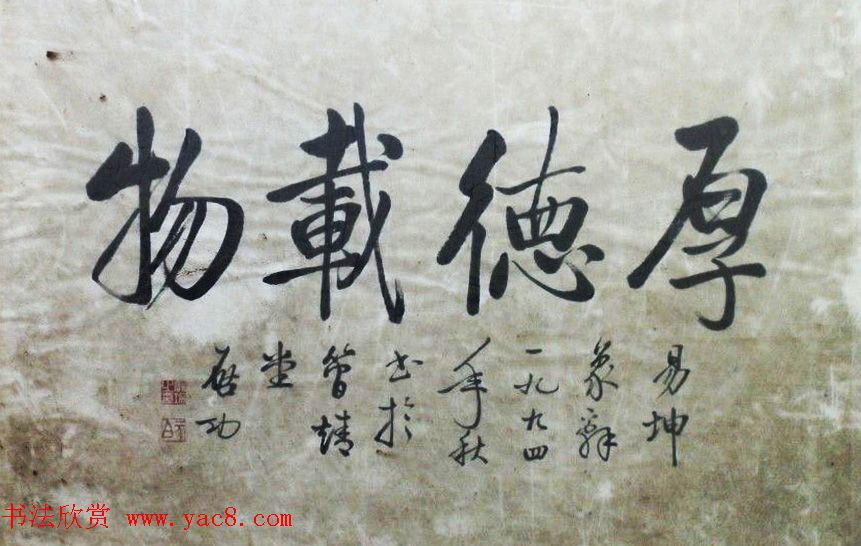 厚德載物
易坤
象辞
一九九四
年秋
书於
簡靖
堂
启功
书法欣赏 www.yac8.com